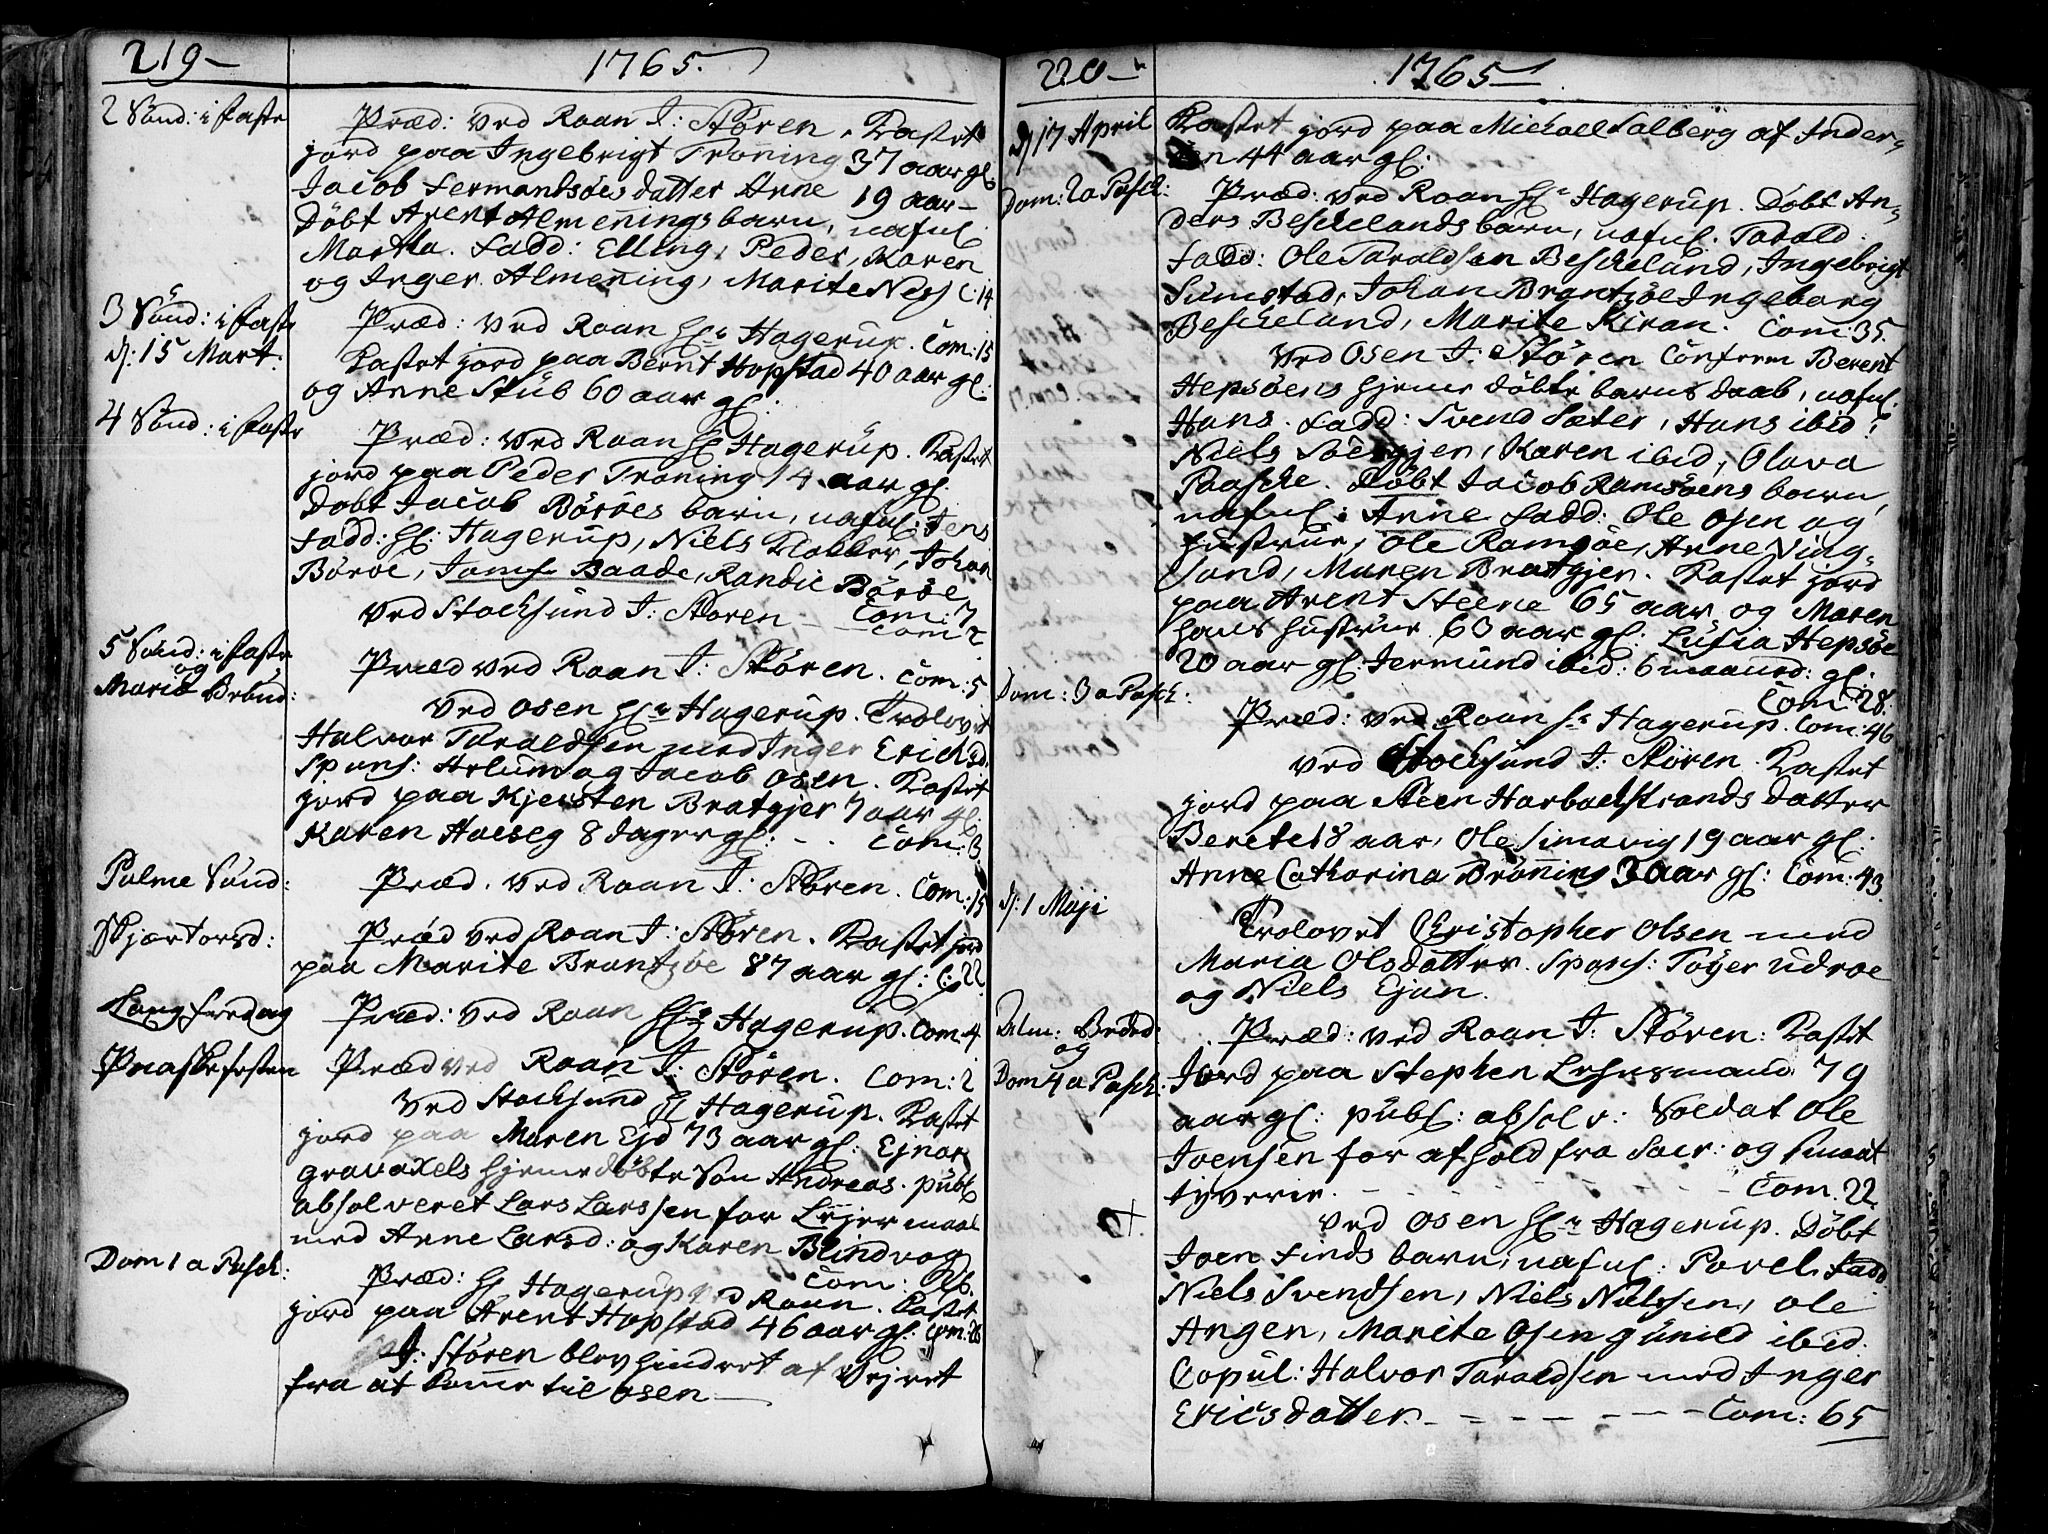 219
1765.
2 Sønd: i faste
Præd: ved Roan J: Stören. Kastet
jord paa Ingebrigt Troning 37 aar gl.
Jacob Fermandsöes datter Anne 19 aar
Döbt Arent Almenings barn, nafnl.
Martha. Fadd: Elling, Peder, Karen
og Inger Almening, Marite Næs C:14
3 Sønd: i faste
Præd: ved Roan Hr Hagerup. Com:15
d: 15 Mart.
Kastet jord paa Bernt Hopstad 40 aar gl:
og Anne Stub 60 aar gl:
4 Sønd: i faste
Præd: ved Roan Hr Hagerup. Kastet
jord paa Peder Troning 14 aar gl.
Döbt Jacob Böröes barn, nafnl: Jens
Fadd: Hr: Hagerup, Niels Klokker, Johan
Böröe, Jomfr Baade, Randie Böröe
Com: 7
ved Stocksund J: Stören Com: 2
5 Sønd: i faste
og
Mariæ Bebud:
Præd ved Roan J: Stören. Com: 5
ved Osen Hr Hagerup. Trolovet
Halvor Taraldsen med Inger Ericksd.
Spons: Arlum og Jacob Osen. Kastet
jord paa Kjersten Bratgjer 7 aar gl:
Karen Hoeseg 8 dager gl: Com: 3
Palme Sønd:
Præd. ved Roan J: Stören. Com: 15
Skjærtorsd:
Præd ved Roan J: Stören. Kastet jord
paa Marite Brantzöe 87 aar gl: C: 22
Langfredag
Præd: ved Roan Hr Hagerup. Com: 4
Paaskefesten
Præd ved Roan J: Stören. Com: 2
ved Stocksund Hr Hagerup. Kastet
jord paa Maren Ejd 73 aar gl: Ejnar
Gravaxels hjemedöbte Sön Andreas. publ
absolveret Lars Larssen for Lejermaal
med Anne Larsd: og Karen Blindvog
Com:
Dom 1 a Pasch:
Præd: Hr Hagerup ved Roan. Kastet
jord paa Arent Hopstad 46 aar gl. Com: 28
J: Stören blev hindret af Vejret
fra at komme til Osen
220
1765
d 17 April
Kastet jord paa Michael Salberg af Inder-
öen 44 aar gl:
Dom: 2 a Pasch:
Præd: ved Roan Hr Hagerup. Döbt An-
ders Beschelands barn, nafnl. Tarald
Fadd: Ole Taraldsen Bescheland, Ingebrigt
Sumstad, Johan Brantzöe Ingeborg
Bescheland, Marite Kiran. Com: 35.
ved Osen J: Stören Confirm Berent
Hepsöens hjeme döbte barns daab, nafnl.
Hans. Fadd: Svend Sæter, Hans ibid:
Niels Söergjer, Karen ibid, Olava
Paasche. Döbt Jacob Ramsöens barn
nafnl: Anne Fadd: Ole Osen og
hustrue, Ole Ramsöe, Anne Ving-
sand, Maren Bratgjer. Kastet jord
paa Arent Steene 65 aar og Maren
hans hustrue 63 aar gl: Lusia Hepsöe
20 aar gl: Jermund ibid: 6 maaned: gl:
Com: 28.
Dom: 3 a Pasch:
Præd: ved Roan Hr Hagerup. Com: 46
ved Stocksund J: Stören. Kastet
jord paa Steen Harbachstrands datter
Berete 18 aar, Ole Simavig 19 aar gl:
Anne Catharina Bröning 30 aar gl: Com: 43.
d: 1 Maji
Trolovet Christopher Olsen med
Maria Olsdatter. Spons: Töger Udröe
og Niels Ejan.
Alm: Beded:
og
Dom 4 a Pasch:
Præd: ved Roan J: Stören: Kastet
Jord paa Stephen Lehnsmand 79
aar gl: publ: absolv: Soldat Ole
Joensen for afhold fra Sacr: og smaat
tyverie. Com. 22.
ved Osen Hr Hagerup. Döbt
Joen Finds barn, nafnl: Povel. Fadd
Niels Svendsen, Niels Nielssen, Ole
Angen, Marite Osen Gunild ibid.
Copul: Halvor Taraldsen med Inger
Ericsdatter. Com: 65